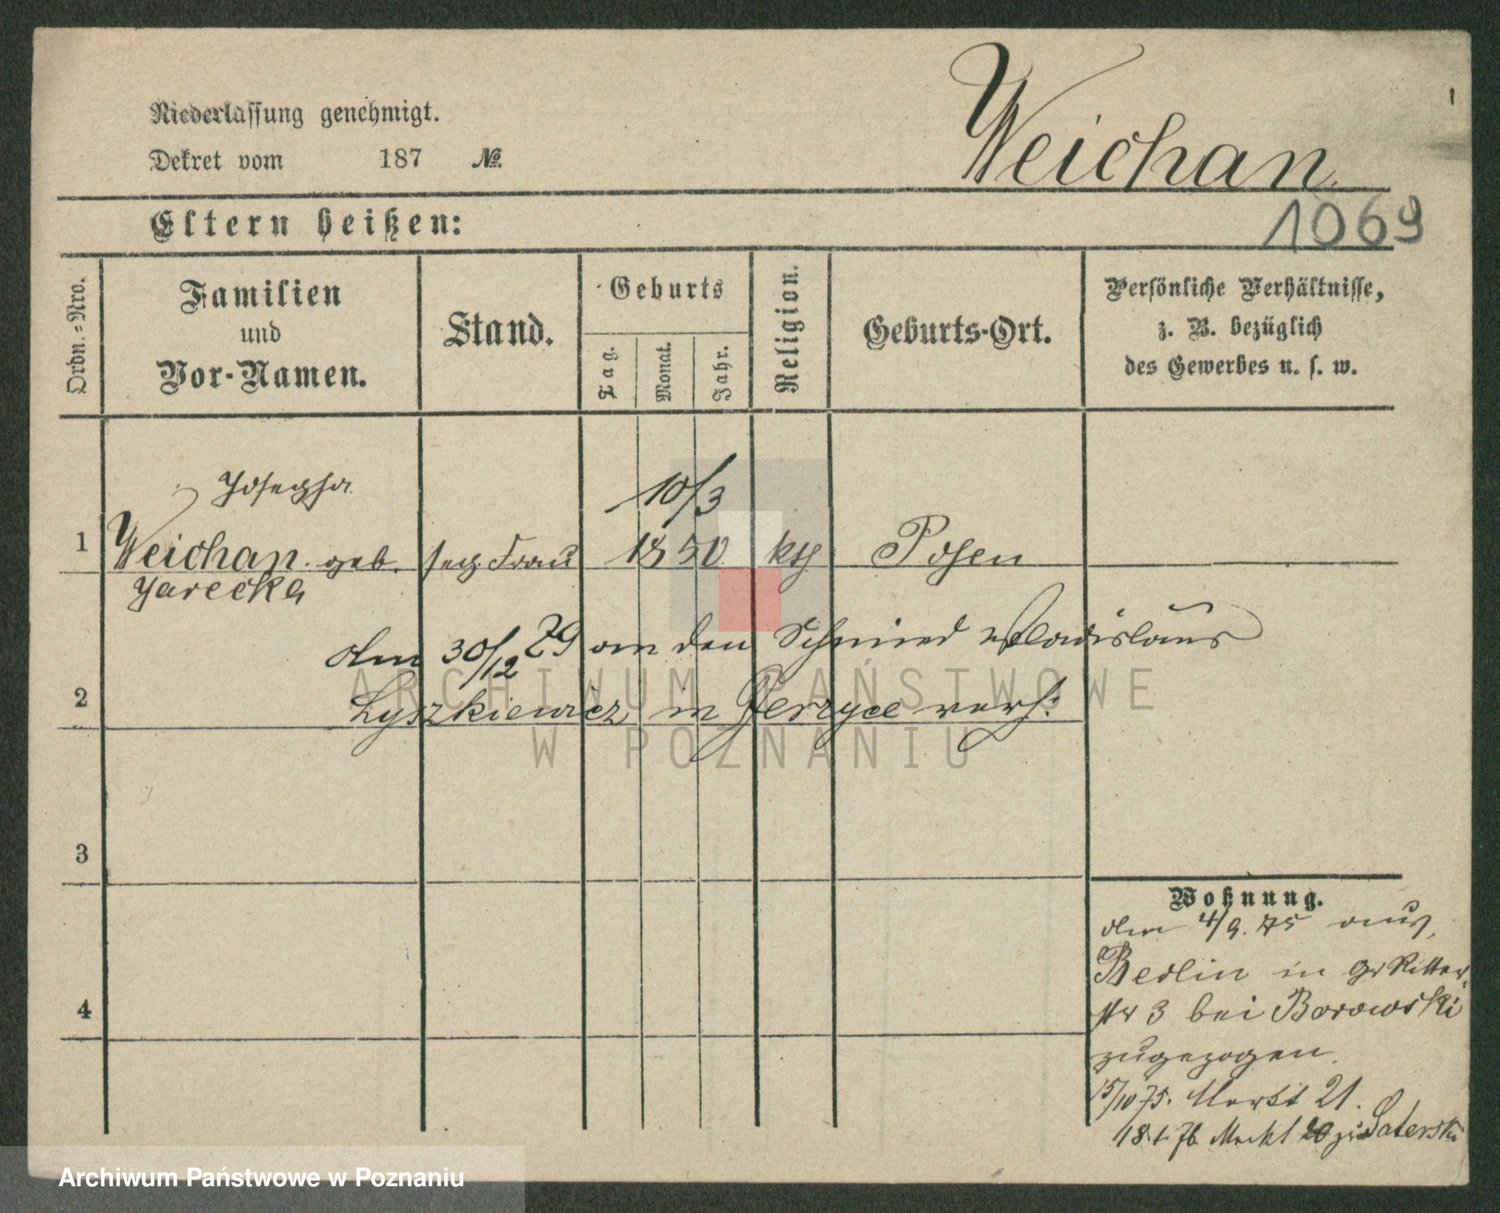 Niederlassung genehmigt.
Weichan.
Dekret vom 187 No.
1069
Eltern heißen:
Ordn.=Nro.
Familien
und
Vor-Namen.
Stand.
Geburts
Tag.
Monat.
Jahr.
Religion.
Geburts-Ort.
Persönliche Verhältnisse,
z. B. bezüglich
des Gewerbes u. s. w.
Josepha
10/3
1 Weichan geb. sep. Frau 1850 kth Posen
Jarecka
Am 30/12 79 an den Schmied Wladislaus
2 Lyszkiewicz in Jerzyce verh:
3
4
Wohnung.
Am 4/9. 75 aus
Berlin in Gr Ritter
str 3 bei Borowski
zugezogen.
15/10 75. Markt 21.
18.1.76 Markt 20 zu Saterski
ARCHIWUM PAŃSTWOWE
W POZNANIU
Archiwum Państwowe w Poznaniu